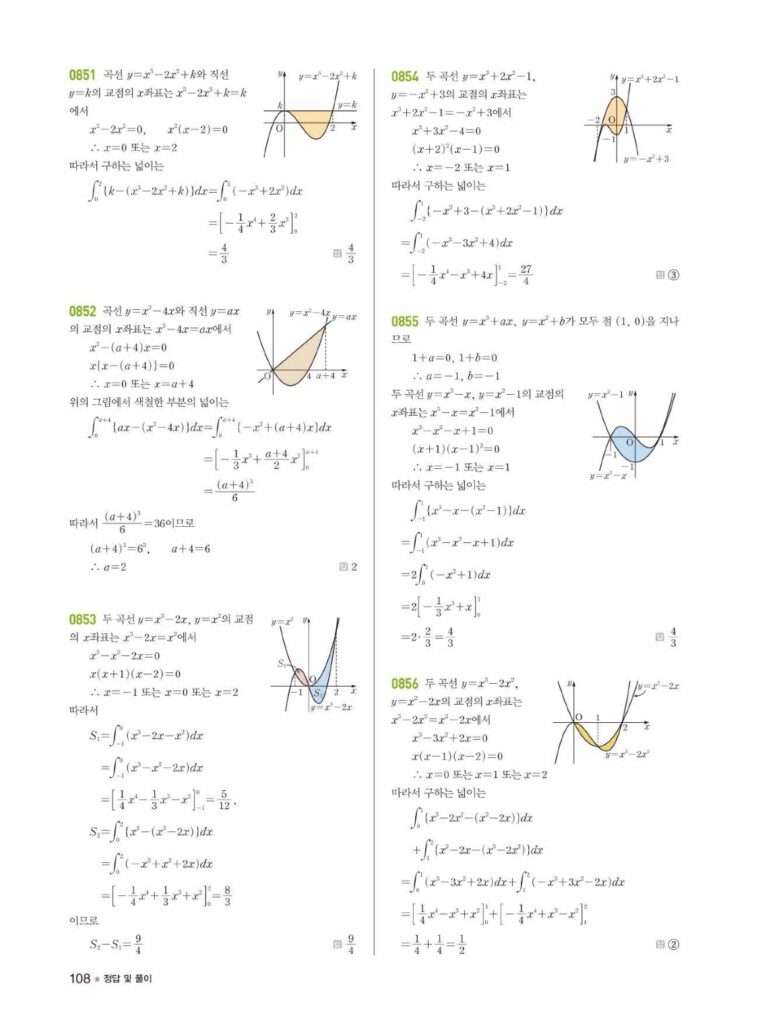 0851 곡선 y=x³-2x²+k와 직선
y=k의 교점의 x좌표는 x³-2x²+k=k
에서
x³-2x²=0, x²(x-2)=0
∴ x=0 또는 x=2
따라서 구하는 넓이는
∫₀²{k-(x³-2x²+k)}dx=∫₀²(-x³+2x²)dx
=[-1/4x⁴+2/3x³]₀²
=4/3 답 4/3
y y=x³-2x²+k
k y=k
O 2 x
0852 곡선 y=x²-4x와 직선 y=ax
의 교점의 x좌표는 x²-4x=ax에서
x²-(a+4)x=0
x{x-(a+4)}=0
∴ x=0 또는 x=a+4
위의 그림에서 색칠한 부분의 넓이는
∫₀^(a+4){ax-(x²-4x)}dx=∫₀^(a+4){-x²+(a+4)x}dx
=[-1/3x³+(a+4)/2x²]₀^(a+4)
=(a+4)³/6
따라서 (a+4)³/6=36이므로
(a+4)³=6³, a+4=6
∴ a=2 답 2
y y=x²-4x y=ax
O 4 a+4 x
0853 두 곡선 y=x³-2x, y=x²의 교점
의 x좌표는 x³-2x=x²에서
x³-x²-2x=0
x(x+1)(x-2)=0
∴ x=-1 또는 x=0 또는 x=2
따라서
S₁=∫₋₁⁰(x³-2x-x²)dx
=∫₋₁⁰(x³-x²-2x)dx
=[1/4x⁴-1/3x³-x²]₋₁⁰=5/12,
S₂=∫₀²{x²-(x³-2x)}dx
=∫₀²(-x³+x²+2x)dx
=[-1/4x⁴+1/3x³+x²]₀²=8/3
이므로
S₂-S₁=9/4 답 9/4
y=x² y
S₁ O
-1 S₂ 2 x
y=x³-2x
0854 두 곡선 y=x³+2x²-1,
y=-x²+3의 교점의 x좌표는
x³+2x²-1=-x²+3에서
x³+3x²-4=0
(x+2)²(x-1)=0
∴ x=-2 또는 x=1
따라서 구하는 넓이는
∫₋₂¹{-x²+3-(x³+2x²-1)}dx
=∫₋₂¹(-x³-3x²+4)dx
=[-1/4x⁴-x³+4x]₋₂¹=27/4 답 ③
y y=x³+2x²-1
3
-2 O 1 x
-1
y=-x²+3
0855 두 곡선 y=x³+ax, y=x²+b가 모두 점 (1, 0)을 지나
므로
1+a=0, 1+b=0
∴ a=-1, b=-1
두 곡선 y=x³-x, y=x²-1의 교점의
x좌표는 x³-x=x²-1에서
x³-x²-x+1=0
(x+1)(x-1)²=0
∴ x=-1 또는 x=1
따라서 구하는 넓이는
∫₋₁¹{x³-x-(x²-1)}dx
=∫₋₁¹(x³-x²-x+1)dx
=2∫₀¹(-x²+1)dx
=2[-1/3x³+x]₀¹
=2·2/3=4/3 답 4/3
y=x²-1 y
O 1 x
-1
-1
y=x³-x
0856 두 곡선 y=x³-2x²,
y=x²-2x의 교점의 x좌표는
x³-2x²=x²-2x에서
x³-3x²+2x=0
x(x-1)(x-2)=0
∴ x=0 또는 x=1 또는 x=2
따라서 구하는 넓이는
∫₀¹{x³-2x²-(x²-2x)}dx
+∫₁²{x²-2x-(x³-2x²)}dx
=∫₀¹(x³-3x²+2x)dx+∫₁²(-x³+3x²-2x)dx
=[1/4x⁴-x³+x²]₀¹+[-1/4x⁴+x³-x²]₁²
=1/4+1/4=1/2 답 ②
y y=x²-2x
O 1 2 x
y=x³-2x²
108 ★ 정답 및 풀이